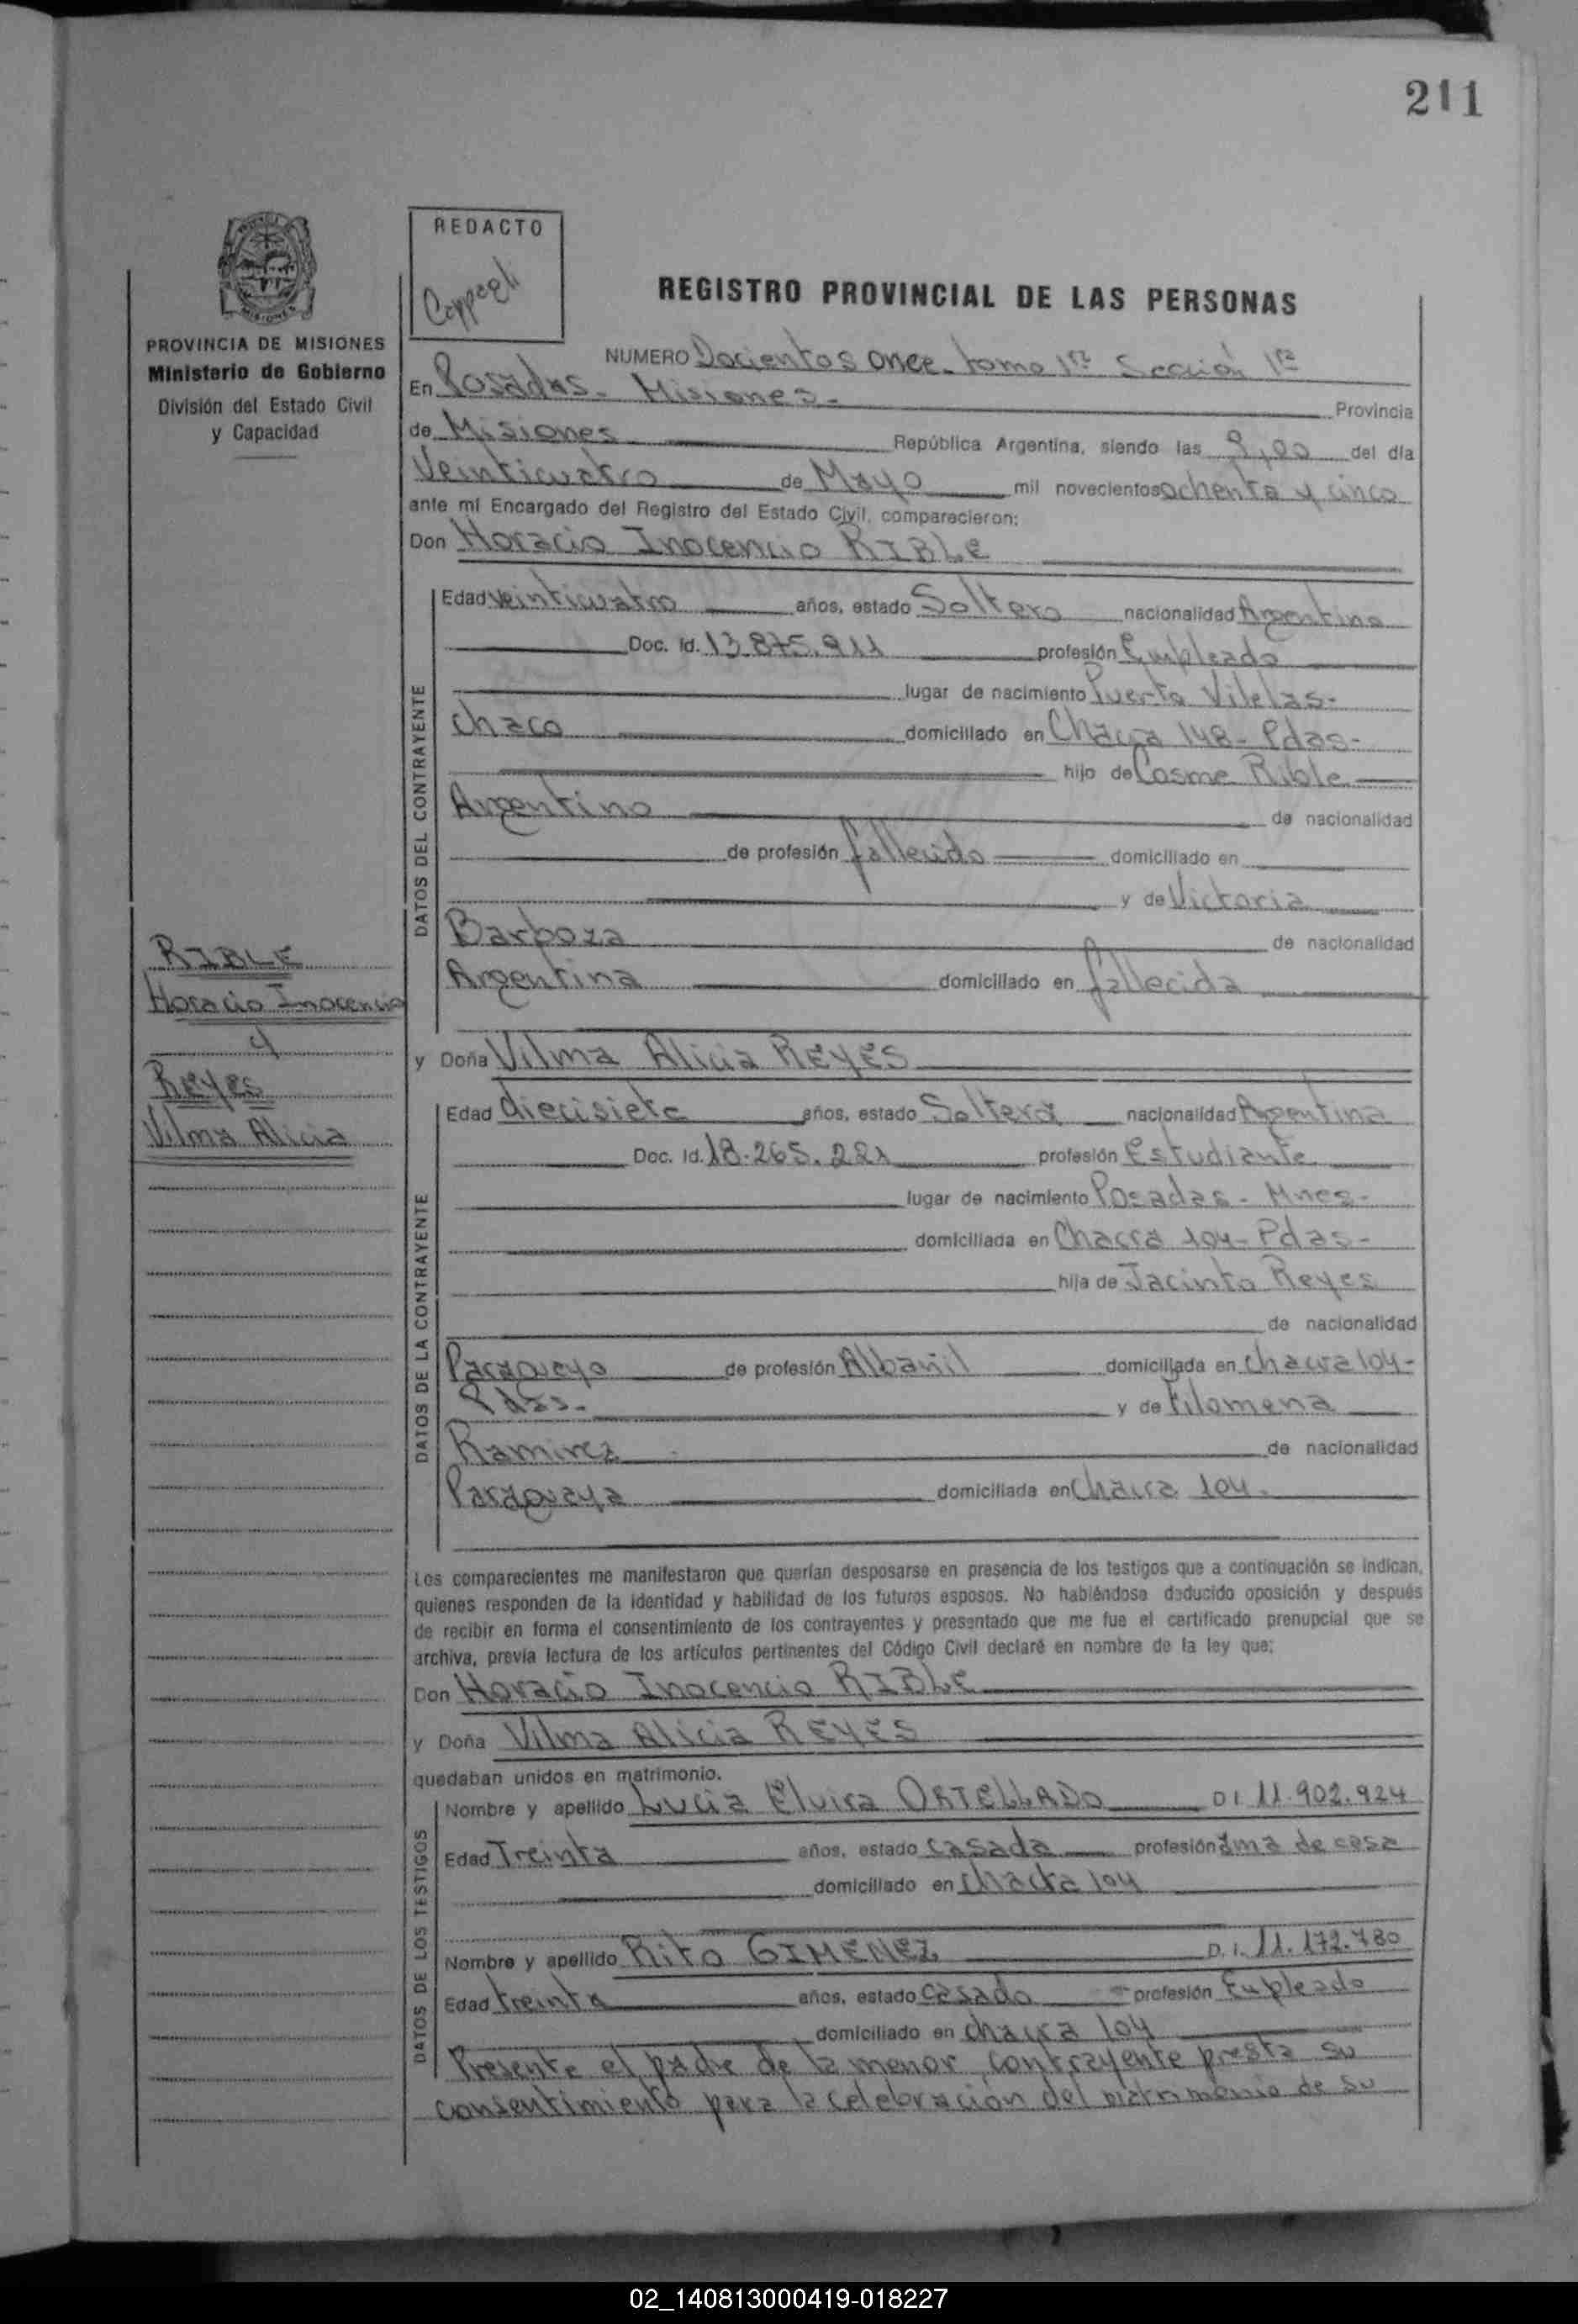 211
REDACTO
REGISTRO PROVINCIAL DE LAS PERSONAS
PROVINCIA DE MISIONES
Ministerio de Gobierno
División del Estado Civil
y Capacidad
NUMERO Docientos once. tomo 1ro Sección 1ra
En Posadas. Misiones. Provincia
de Misiones República Argentina, siendo las 9,00 del día
Veinticuatro de Mayo mil novecientos ochenta y cinco
ante mi Encargado del Registro del Estado Civil, comparecieron:
Don Horacio Inocencio RIBLE
DATOS DEL CONTRAYENTE
Edad veinticuatro años, estado Soltero nacionalidad Argentino
Doc. Id. 13.875.911 profesión Empleado
lugar de nacimiento Puerto Vilelas-
Chaco domiciliado en Chacra 148- Pdas-
hijo de Cosme Rible
Argentino de nacionalidad
de profesión fallecido domiciliado en
y de Victoria
Barboza de nacionalidad
Argentina domiciliado en fallecida
RIBLE
Horacio Inocencio
y
Reyes
Vilma Alicia
y Doña Vilma Alicia REYES
DATOS DE LA CONTRAYENTE
Edad diecisiete años, estado Soltera nacionalidad Argentina
Doc. Id. 18.265.221 profesión Estudiante
lugar de nacimiento Posadas- Mnes-
domiciliada en Chacra 104- Pdas-
hija de Jacinto Reyes
de nacionalidad
Paraguayo de profesión Albañil domiciliada en chacra 104-
Pdas- y de Filomena
Ramirez de nacionalidad
Paraguaya domiciliada en Chacra 104.
Los comparecientes me manifestaron que querían desposarse en presencia de los testigos que a continuación se indican,
quienes responden de la identidad y habilidad de los futuros esposos. No habiéndose deducido oposición y después
de recibir en forma el consentimiento de los contrayentes y presentado que me fue el certificado prenupcial que se
archiva, previa lectura de los artículos pertinentes del Código Civil declaré en nombre de la ley que:
Don Horacio Inocencio RIBLE
y Doña Vilma Alicia REYES
quedaban unidos en matrimonio.
DATOS DE LOS TESTIGOS
Nombre y apellido Lucia Elvira ORTELLADO D I. 11.902.924
Edad Treinta años, estado casada profesión ama de casa
domiciliado en chacra 104
Nombre y apellido Rito GIMENEZ D. I. 11.172.780
Edad treinta años, estado casado profesión Empleado
domiciliado en chacra 104
Presente el padre de la menor contrayente presta su
consentimiento para la celebración del matrimonio de su
02_140813000419-018227